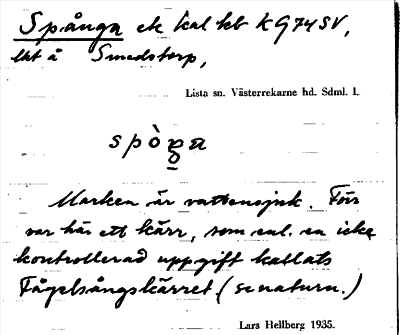 Spånga ek kal kb KG74SV,
lht å Smedstorp,
Lista sn. Västerrekarne hd. Sdml. l.
spò̀ŋa
Marken är vattensjuk. Förr
var här ett kärr, som enl. en icke
kontrollerad uppgift kallats
Fågelsångskärret. (se naturn.)
Lars Hellberg 1935.